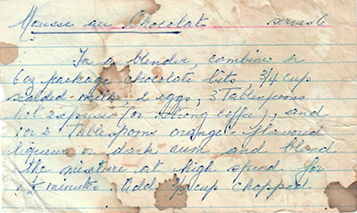 Mousse au Chocolate serves 6
In a blender, combine a
6 oz package chocolate bits 3/4 cup
scalded milk 2 eggs, 3 Tablespoons
hot espresso (or strong coffee), and
1 or 2 Tablespoons orange-flavored
liqueur or dark rum and blend
the mixture at high speed for
1 1/2 minutes. Add cup chopped